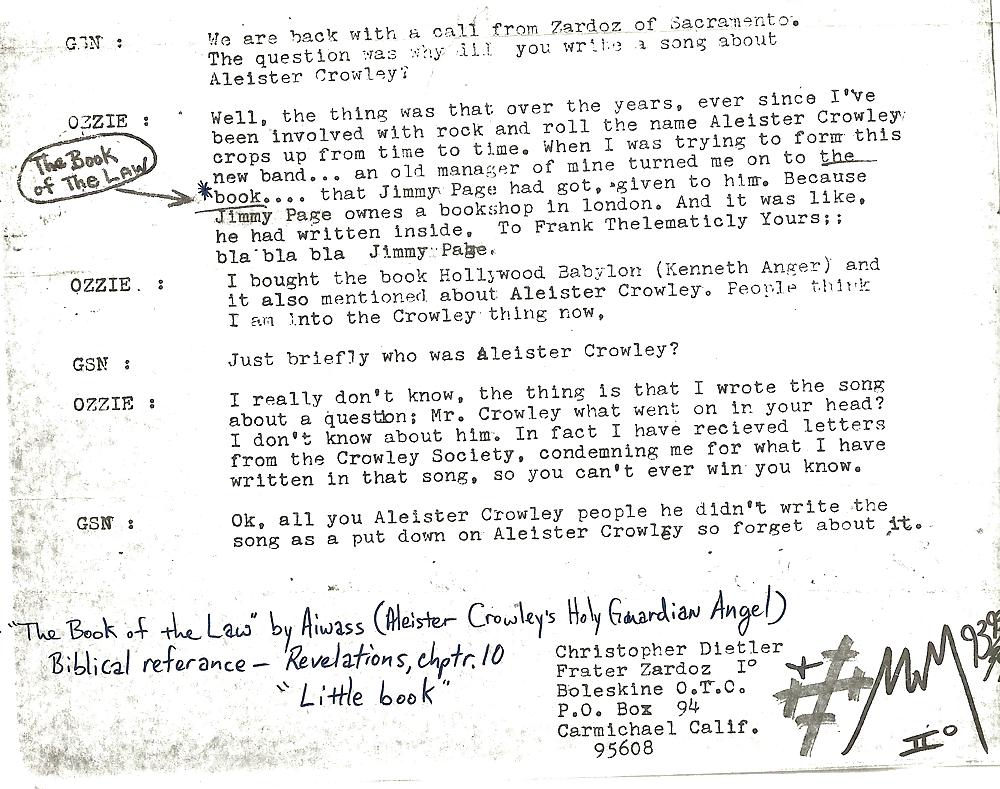 GSN : We are back with a call from Zardoz of Sacramento.
The question was why did you write a song about
Aleister Crowley?
OZZIE : Well, the thing was that over the years, ever since I've
been involved with rock and roll the name Aleister Crowley
crops up from time to time. When I was trying to form this
new band... an old manager of mine turned me on to the
*book.... that Jimmy Page had got, given to him. Because
Jimmy Page ownes a bookshop in london. And it was like,
he had written inside. To Frank Thelematicly Yours;;
bla bla bla Jimmy Page.
The Book
of The LAW
OZZIE. : I bought the book Hollywood Babylon (Kenneth Anger) and
it also mentioned about Aleister Crowley. People think
I am into the Crowley thing now,
GSN : Just briefly who was Aleister Crowley?
OZZIE : I really don't know, the thing is that I wrote the song
about a question; Mr. Crowley what went on in your head?
I don't know about him. In fact I have recieved letters
from the Crowley Society, condemning me for what I have
written in that song, so you can't ever win you know.
GSN : Ok, all you Aleister Crowley people he didn't write the
song as a put down on Aleister Crowley so forget about it.
"The Book of the Law" by Aiwass (Aleister Crowley's Holy Guardian Angel)
Biblical referance – Revelations, chptr. 10
"Little book"
Christopher Dietler
Frater Zardoz I°
Boleskine O.T.O.
P.O. Box 94
Carmichael Calif.
95608
II°